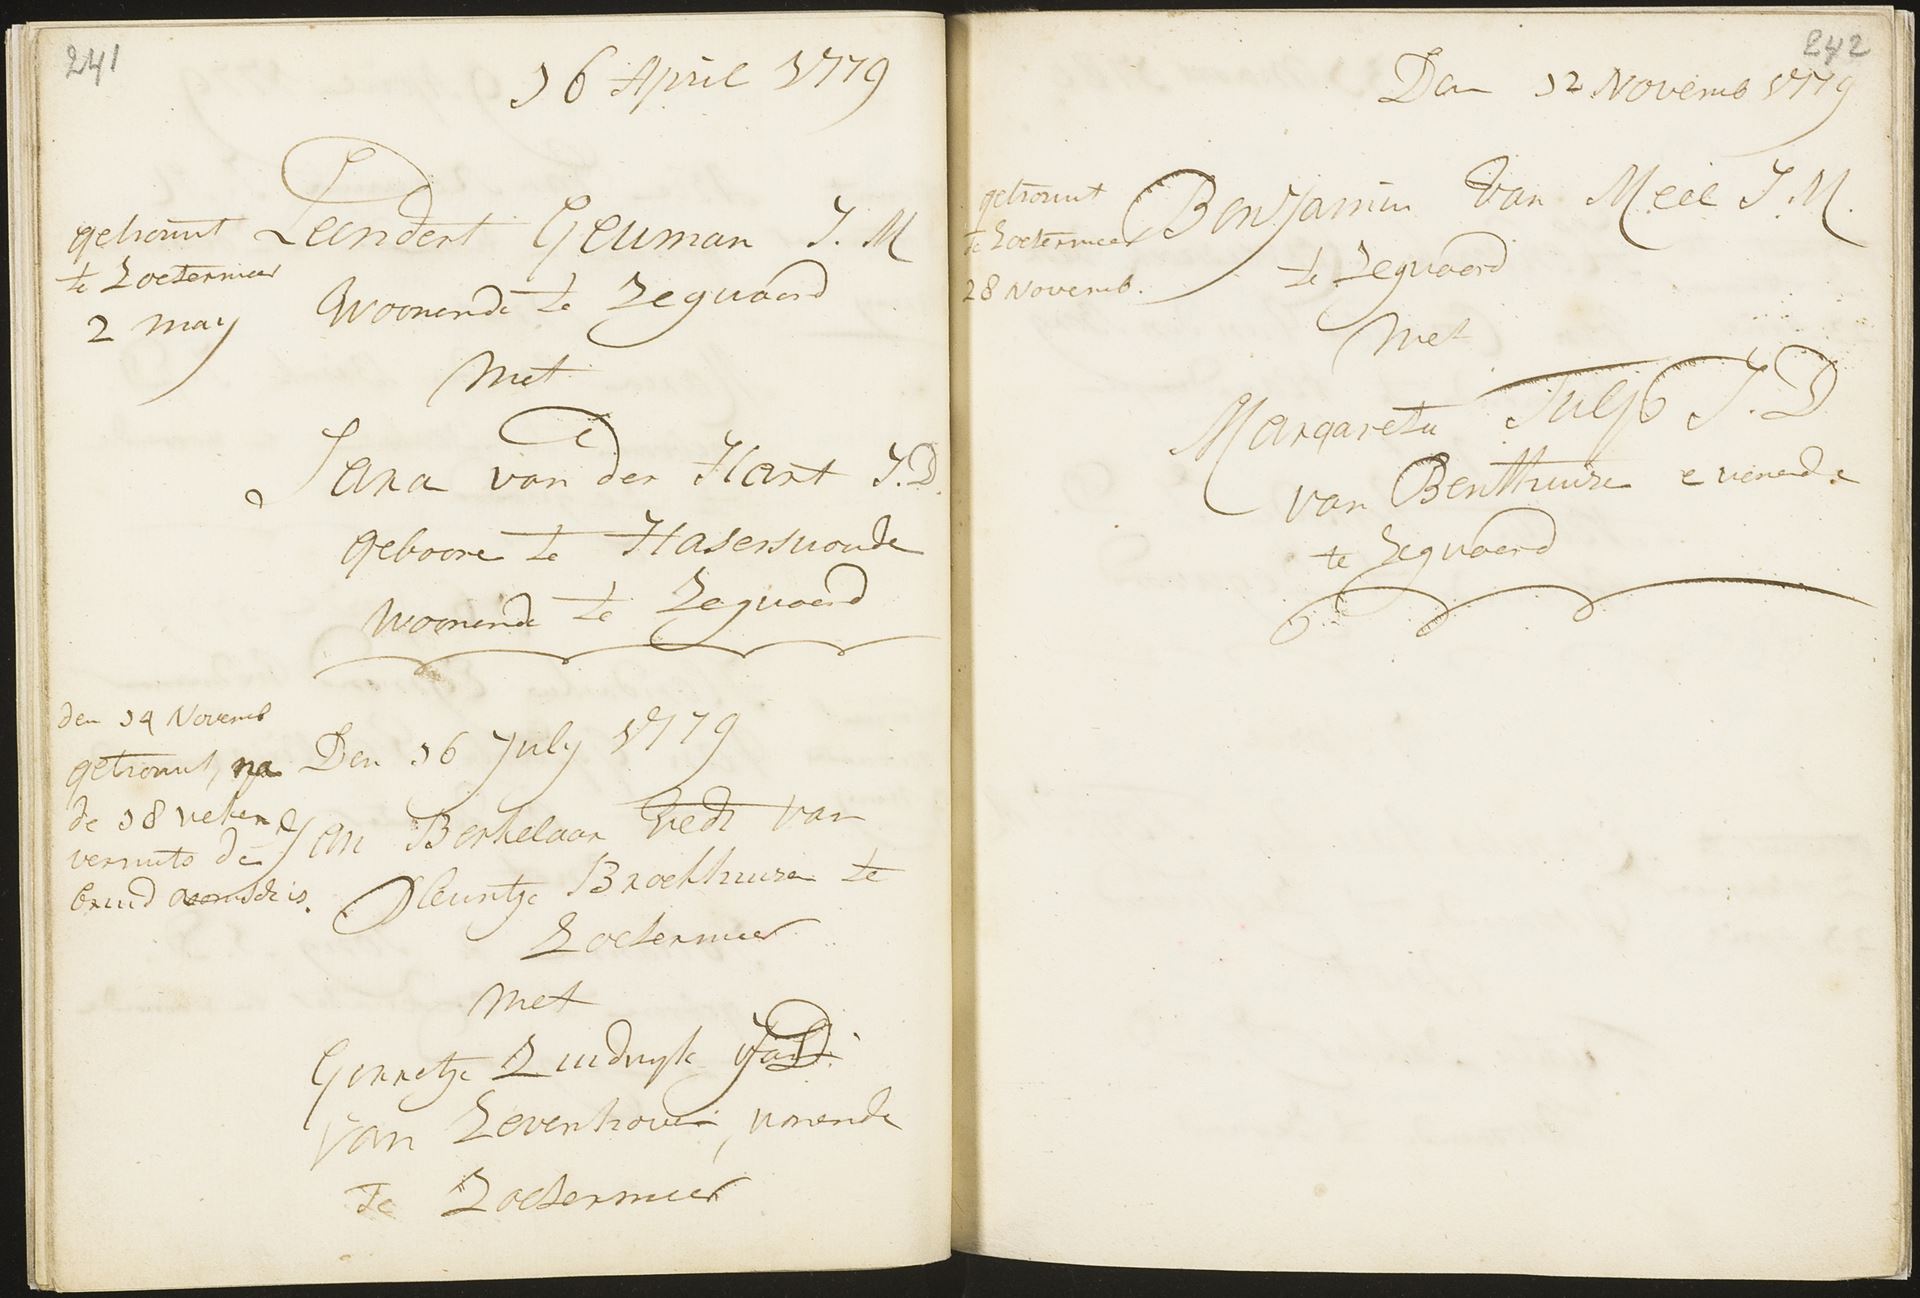 241
16 April 1779
getrouwt
te Zoetermeer
2 may
Leendert Geuman J. M
Woonende te Zegwaard
Met
Jana van der Hart J. D.
geboore te Haserswoude
Woonende te Zegwaard
den 14 Novemb
getrouwt, na
de 18 weken
vermits de
bruid is.
Den 16 July 1779
Jan Berkelaar Wedr van
Pleuntje Broekhuize te
Zoetermeer
Met
Gerretje Zuidwyk
Van Zevenhove, wonende
te Zoetermeer
242
Den 12 Novemb 1779
getrouwt
te Zoetermeer
28 Novemb.
Benjamin Van Meel J. M.
te Zegwaard
Met
Margareta Tulp J. D
van Benthuize wonende
te Zegwaard